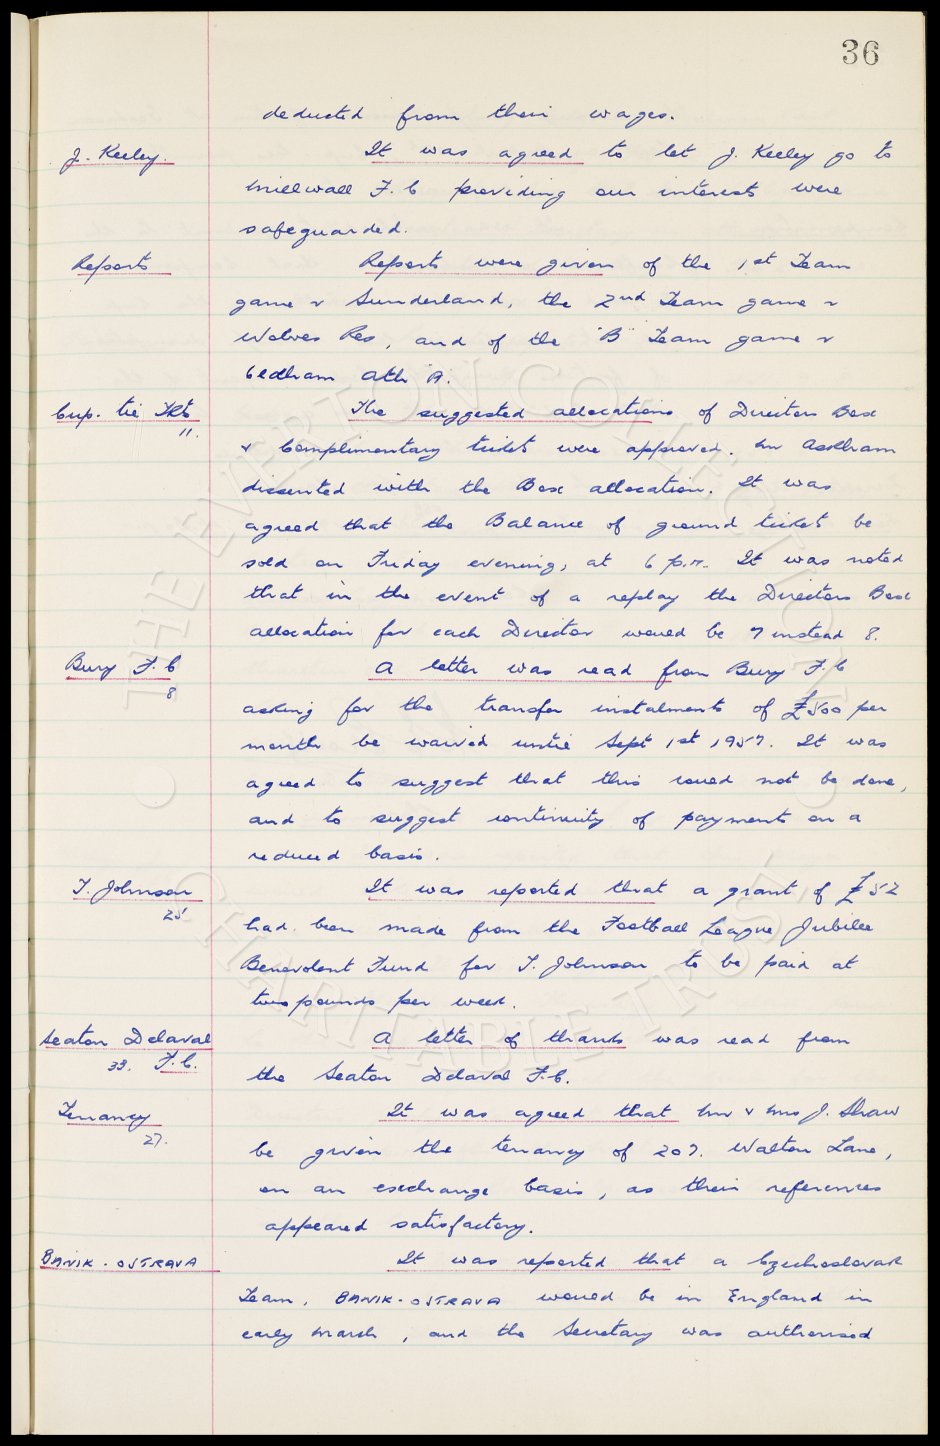 36
deducted from their wages.
J. Keeley. It was agreed to let J. Keeley go to
Millwall F.C providing our interests were
safeguarded.
Reports Reports were given of the 1st Team
game v Sunderland, the 2nd Team game v
Wolves Res, and of the "B" Team game v
Oldham Ath A.
Cup. tie Tkts The suggested allocations of Directors Box
11. & Complimentary tickets were approved. Mr Askham
dissented with the Box allocation. It was
agreed that the Balance of ground tickets be
sold on Friday evening, at 6 p.m. It was noted
that in the event of a replay the Directors Box
allocation for each Director would be 7 instead 8.
Bury F.C A letter was read from Bury F.C
8
asking for the transfer instalments of £500 per
month be waived until Sept 1st 1957. It was
agreed to suggest that this could not be done,
and to suggest continuity of payments on a
reduced basis.
T. Johnson It was reported that a grant of £52
25
had been made from the Football League Jubilee
Benevolent Fund for T. Johnson to be paid at
two pounds per week.
Seaton Delaval A letter of thanks was read from
33. F.C.
the Seaton Delaval F.C.
Tenancy It was agreed that Mr & Mrs J. Shaw
27.
be given the tenancy of 207. Walton Lane,
on an exchange basis, as their references
appeared satisfactory.
BANIK-OSTRAVA It was reported that a Czechoslovak
Team, BANIK-OSTRAVA would be in England in
early March, and the Secretary was authorised
THE EVERTON COLLECTION
CHARITABLE TRUST